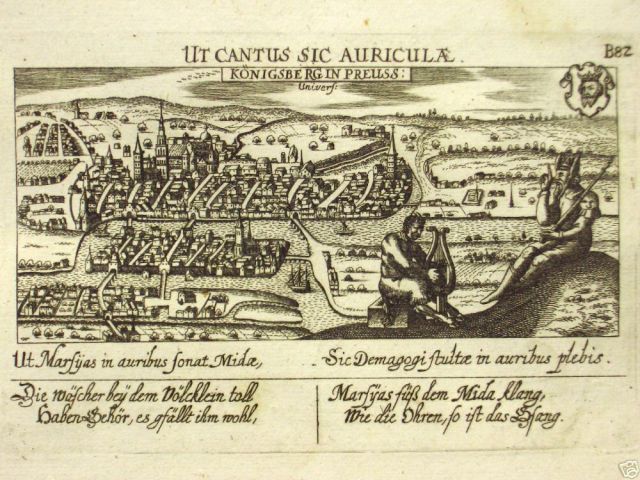 UT CANTUS SIC AURICULÆ.
B82
KÖNIGSBERG IN PREUSS:
Univers:
Ut Marsÿas in auribus sonat Midæ,
Sic Demagogi stultæ in auribus plebis.
Die wöscher beÿ dem Völcklein toll
Haben Gehör, es gfällt ihm wohl,
Marsÿas süß dem Mida klang,
Wie die Ohren, so ist das Gsang.